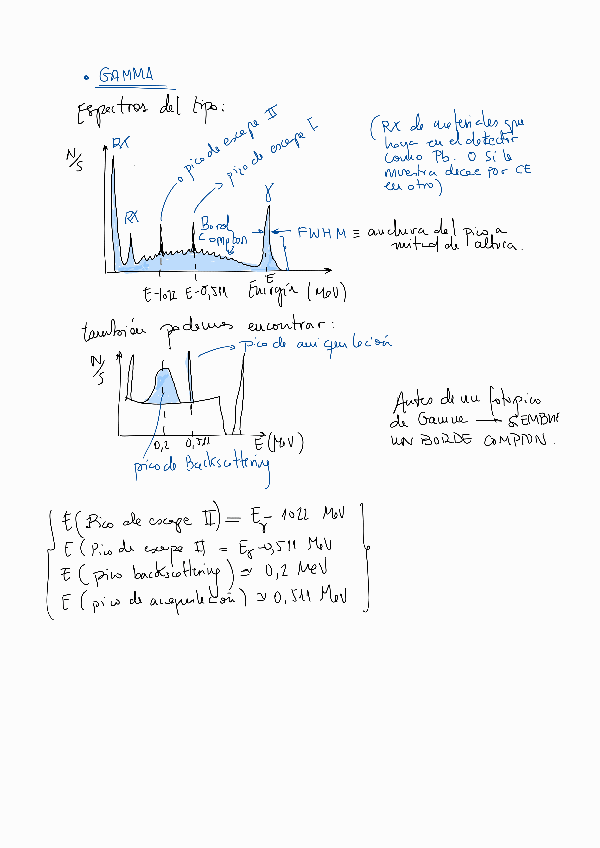 • GAMMA
Espectros del tipo:
N/s
RX
RX
pico de escape II
pico de escape I
Bord
Compton
γ
FWHM ≡ anchura del pico a
mitad de altura.
(RX de materiales que
haya en el detector
como Pb. O si la
muestra decae por CE
en otro)
E-1022 E-0,511 E
Energía (MeV)
también podemos encontrar:
N/s
pico de aniquilación
0,2 0,511 E (MeV)
pico de Backscattering
Antes de un fotopico
de Gamma → SIEMPRE
UN BORDE COMPTON.
E (Pico de escape II) = Eγ - 1022 MeV
E (Pico de escape I) = Eγ - 0,511 MeV
E (pico backscattering) ≃ 0,2 MeV
E (pico de aniquilación) ≃ 0,511 MeV